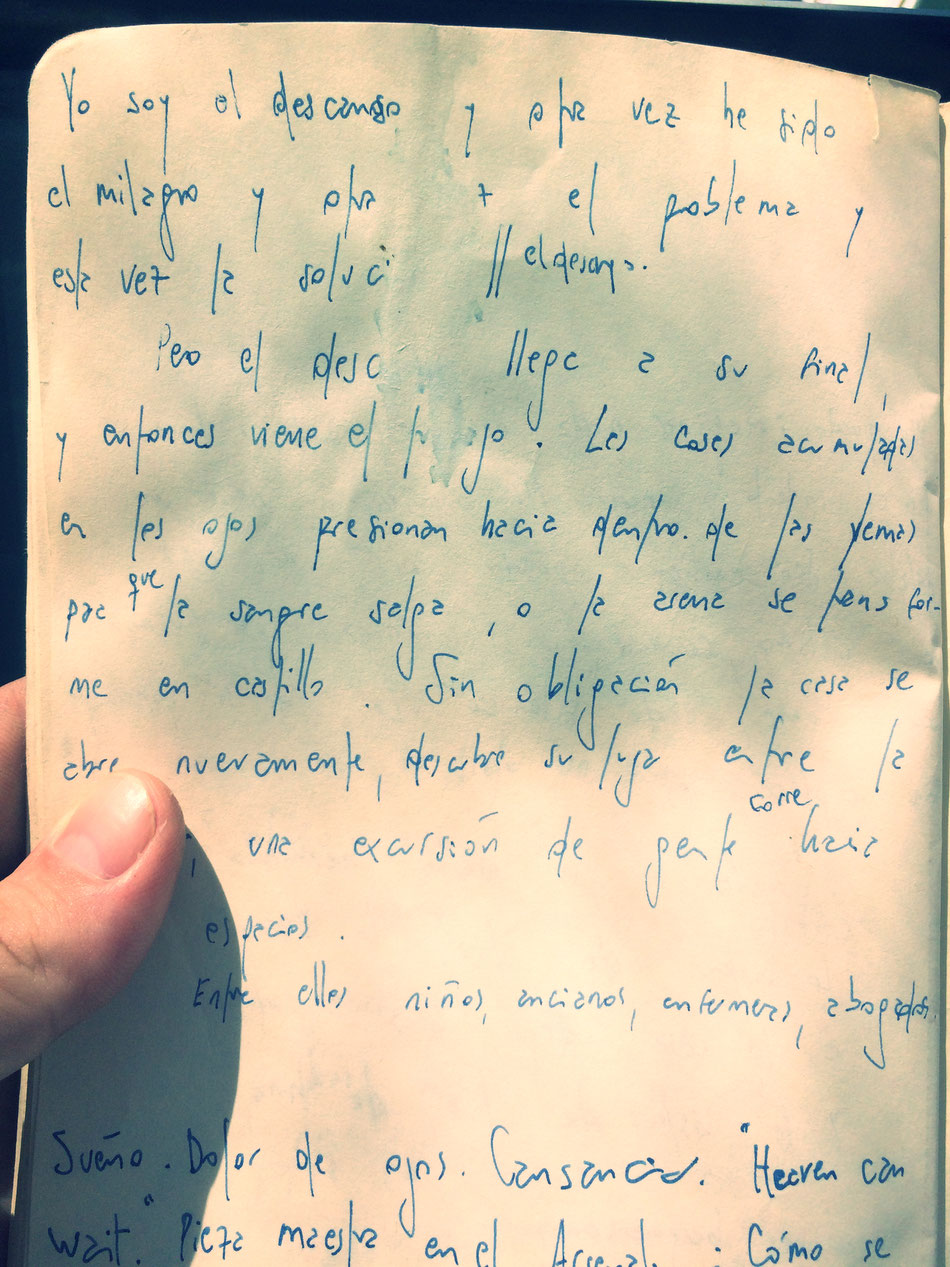 Yo soy el descanso y otra vez he sido
el milagro y otra el problema y
esta vez la soluci // el descanso.
Pero el desc llega a su final,
y entonces viene el . Las cosas acumuladas
en los ojos presionan hacia dentro. de las yemas
para que la sangre salga, o la arena se transfor-
me en castillo. Sin obligación la casa se
abre nuevamente, descubre su lugar entre la
, una excursión de gente corre hacia
espacios.
Entre ellos niños, ancianos, enfermeras, abogados.
Sueño. Dolor de ojos. Cansancio. "Heaven can
wait." Pieza maestra en el Arsenal. : Cómo se